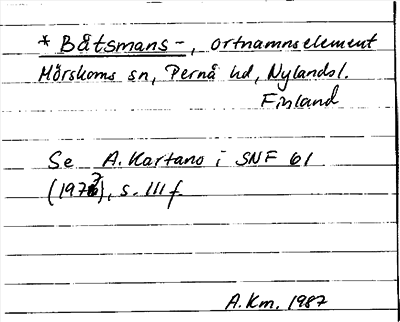 * Båtsmans-, ortnamnselement
Mörskoms sn, Pernå hd, Nylands l.
Finland
Se A. Kartano i SNF 61
(1973), s. 111 f
A.Km. 1987